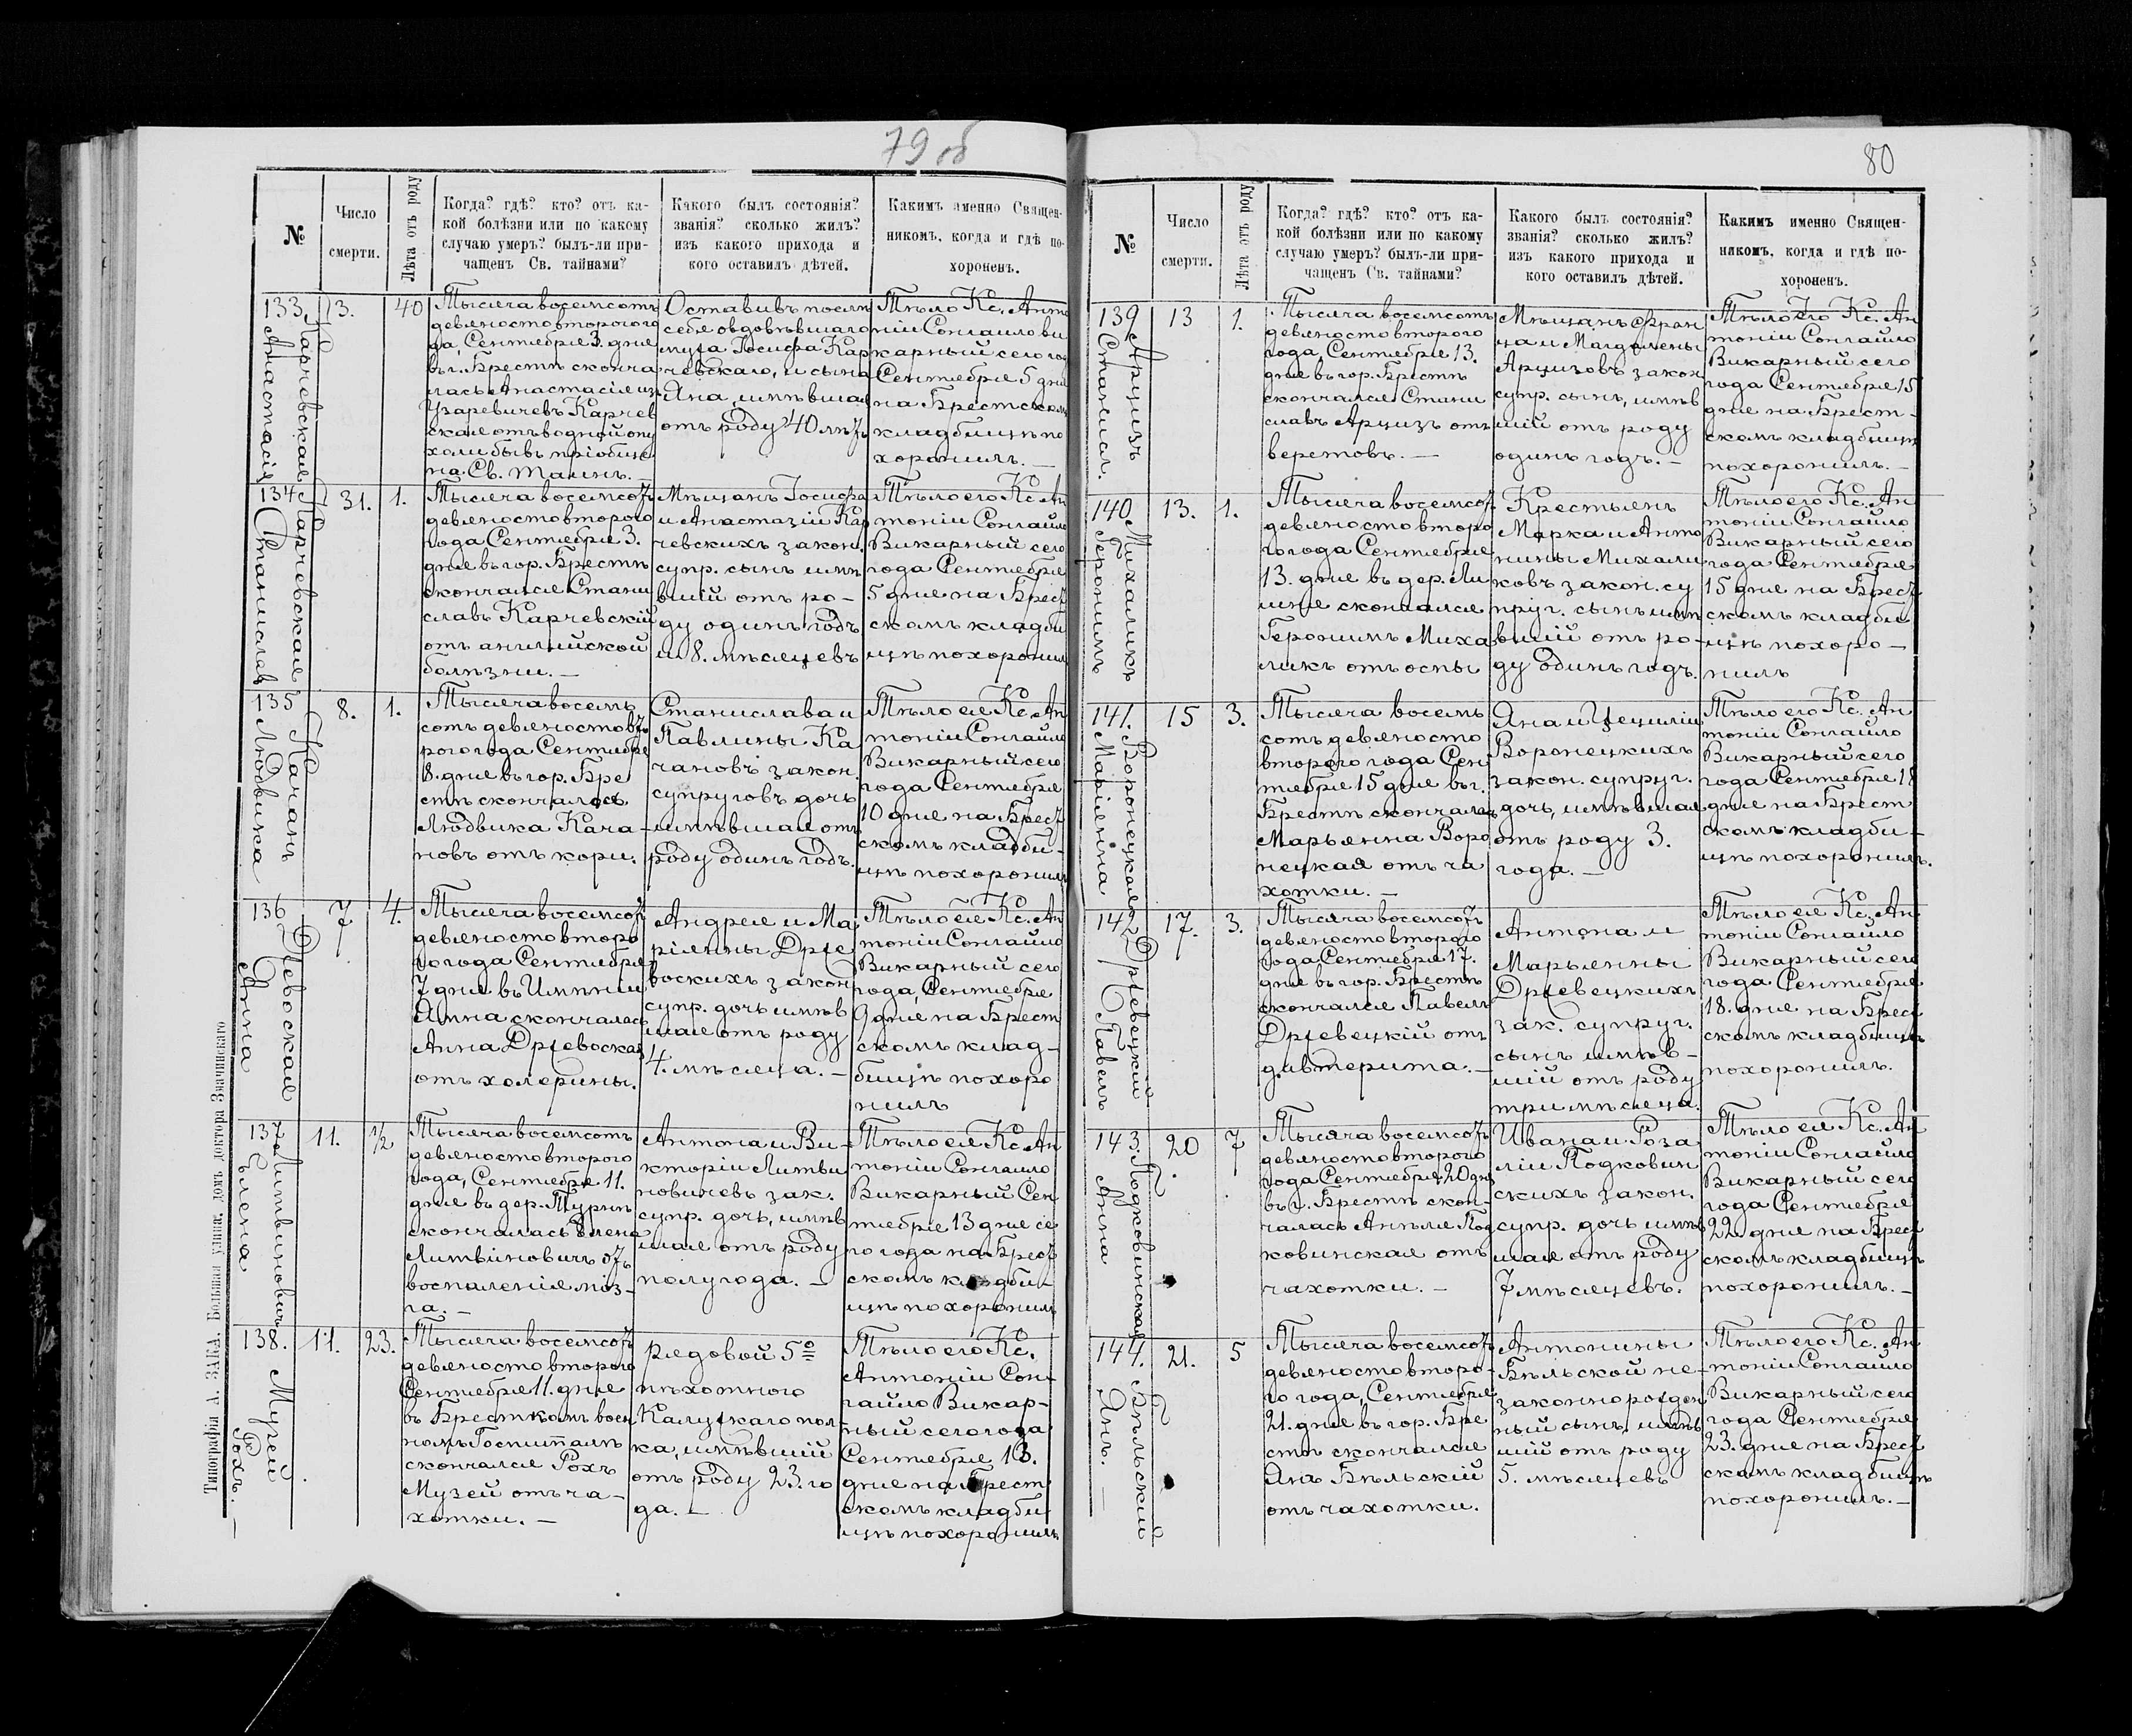 79 об
№
Число
смерти.
Лѣта отъ роду
Когда? гдѣ? кто? отъ ка-
кой болѣзни или по какому
случаю умеръ? былъ-ли при-
чащенъ Св. тайнами?
Какого былъ состоянія?
званія? сколько жилъ?
изъ какого прихода и
кого оставилъ дѣтей.
Какимъ именно Священ-
никомъ, когда и гдѣ по-
хороненъ.
133
Карчевская
Анастасія
3.
40
Тысяча восемсотъ
девяносто второго го
да, Сентября 3. дня
въ г. Брестѣ сконча
лась Анастасія изъ
Узаревичевъ Карчев
ская отъ водной опу
холи бывъ пріобще
на Св. Таинъ. —
Оставивъ послѣ
себя овдовѣвшаго
мужа Іосифа Кар
чевскаго, и сына
Яна, имѣвшая
отъ роду 40 лѣтъ
Тѣло Кс. Анто
ній Сонгайло ви
карный сего год
Сентября 5 дня
на Брестскомъ
кладбищѣ по
хоронилъ. —
134
Карчевская
Станиславъ
31.
1.
Тысяча восемсотъ
девяносто второго
года Сентября 3.
дня въ гор. Брестѣ
скончался Стани
славъ Карчевскій
отъ англійской
болѣзни. —
Мѣщанъ Іосифа
и Анастазіи Кар
чевскихъ закон.
супр. сынъ имѣ
вшій отъ ро-
ду одинъ годъ
и 8. мѣсяцевъ
Тѣло его Кс. Ан
тоній Сонгайло
Викарный сего
года Сентября
5 дня на Брест
скомъ кладби
щѣ похоронилъ
135
Качанъ
Людвика
8.
1.
Тысяча восемь
сотъ девяносто вт
рого года Сентября
8. дня въ гор. Бре
стѣ скончалась
Людвика Кача-
новъ отъ кори.
Станислава и
Павлины Ка
чановъ закон.
супруговъ дочь
имѣвшая отъ
роду одинъ годъ.
Тѣло ея Кс. Ан
тоній Сонгайло
Викарный сего
года Сентября
10 дня на Брест
скомъ кладби-
щѣ похоронилъ
136
Држевоская
Анна
7
4.
Тысяча восемсотъ
девяносто второ
го года Сентября
7 дня въ Имѣніи
Анна скончалась
Анна Држевоская
отъ холерины.
Андрея и Ма
ріянны Држе
воскихъ закон
супр. дочь имѣв
шая отъ роду
4. мѣсяца. —
Тѣло ея Кс. Ан
тоній Сонгайло
Викарный сего
года, Сентября
9 дня на Брест
скомъ клад-
бищѣ похоро
нилъ
137
Литвиновичъ
Елена
11.
1/2
Тысяча восемсотъ
девяносто второго
года, Сентября 11.
дня въ дер. Турнѣ
скончалась Елена
Литвиновичъ отъ
воспаленія моз-
га. —
Антона и Ви-
кторіи Литви
новичевъ зак.
супр. дочь, имѣв
шая отъ роду
полугода. —
Тѣло ея Кс. Ан
тоній Сонгайло
Викарный Сен
тября 13 дня се
го года на Брест
скомъ кладби-
щѣ похоронилъ
138.
Музей
Рохъ. —
11.
23.
Тысяча восемсотъ
девяносто второго
Сентября 11. дня
въ Брестскомъ воен
номъ Госпиталѣ
скончался Рохъ
Музей отъ ча-
хотки. —
рядовой 5о
пѣхотнаго
Калужкаго пол-
ка, имѣвшій
отъ роду 23. го
да. —
Тѣло его Кс.
Антоній Сон-
гайло Викар-
ный сего года
Сентября 13.
дня на Брест
скомъ кладби
щѣ похоронилъ
Типографія А. ЗАКА. Большая улица. домъ доктора Значинскаго
80
№
Число
смерти.
Лѣта отъ роду
Когда? гдѣ? кто? отъ ка-
кой болѣзни или по какому
случаю умеръ? былъ-ли при-
чащенъ Св. тайнами?
Какого былъ состоянія?
званія? сколько жилъ?
изъ какого прихода и
кого оставилъ дѣтей.
Какимъ именно Священ-
никомъ, когда и гдѣ по-
хороненъ.
139
Арцизъ
Станисл.
13
1.
Тысяча восемсотъ
девяносто второго
года, Сентября 13.
дня въ гор. Брестѣ
скончался Стани
славъ Арцизъ отъ
веретовъ. —
Мѣщанъ Фран
ца и Магдалены
Арцизовъ закон
супр. сынъ, имѣв
шій отъ роду
одинъ годъ. —
Тѣло его Кс. Ан
тоній Сонгайло
Викарный сего
года Сентября 15
дня на Брест-
скомъ кладбищѣ
похоронилъ. —
140
Михаликъ
Геронимъ
13.
1.
Тысяча восемсот
девяносто второ
го года Сентября
13. дня въ дер. Ли
скончался
Геронимъ Миха
ликъ отъ оспы
Крестьянъ
Марка и Анто
нины Михали
ковъ закон. су
пруг. сынъ имѣ
вшій отъ ро-
ду одинъ годъ.
Тѣло его Кс. Ан
тоній Сонгайло
Викарный сего
года Сентября
15 дня на Брест
скомъ кладби
щѣ похоро-
нилъ
141.
Воронецкая
Маріянна
15
3.
Тысяча восемь
сотъ девяносто
второго года Сен
тября 15 дня въ г.
Брестѣ скончалась
Марьянна Воро
нецкая отъ ча
хотки. —
Яна и Цециліи
Воронецкихъ
закон. супруг.
дочь, имѣвшая
отъ роду 3.
года. —
Тѣло его Кс. Ан
тоній Сонгайло
Викарный сего
года Сентября 18
дня на Брест
скомъ кладби-
щѣ похоронилъ.
142
Држевецкій
Павелъ
17.
3.
Тысяча восемсотъ
девяносто второго
года Сентября 17.
дня въ гор. Брестѣ
скончался Павелъ
Држевецкій отъ
дифтерита. —
Антона и
Марьянны
Држевецкихъ
зак. супруг.
сынъ имѣв-
шій отъ роду
три мѣсяца.
Тѣло ея Кс. Ан
тоній Сонгайло
Викарный сего
года Сентября
18. дня на Брест
скомъ кладбищѣ
похоронилъ.
143.
Подковинская
Анна
20
7
Тысяча восемсотъ
девяносто второго
года Сентября 20 дня
въ г. Брестѣ скон-
чалась Анѣля Под
ковинская отъ
чахотки. —
Ивана и Роза
ліи Подковин
скихъ закон.
супр. дочь имѣв
шая отъ роду
7 мѣсяцевъ.
Тѣло ея Кс. Ан
тоній Сонгайло
Викарный сего
года Сентября
22. дня на Брест
скомъ кладбищѣ
похоронилъ. —
144.
Бѣльскій
Янъ. —
21.
5
Тысяча восемсотъ
девяносто второ-
го года, Сентября
21. дня въ гор. Бре
стѣ скончался
Янъ Бѣльскій
отъ чахотки.
Антонины
Бѣльской не-
законнорожден
ный сынъ, имѣв
шій отъ роду
5. мѣсяцевъ
Тѣло его Кс. Ан
тоній Сонгайло
Викарный сего
года Сентября
23. дня на Брест
скомъ кладбищѣ
похоронилъ. —